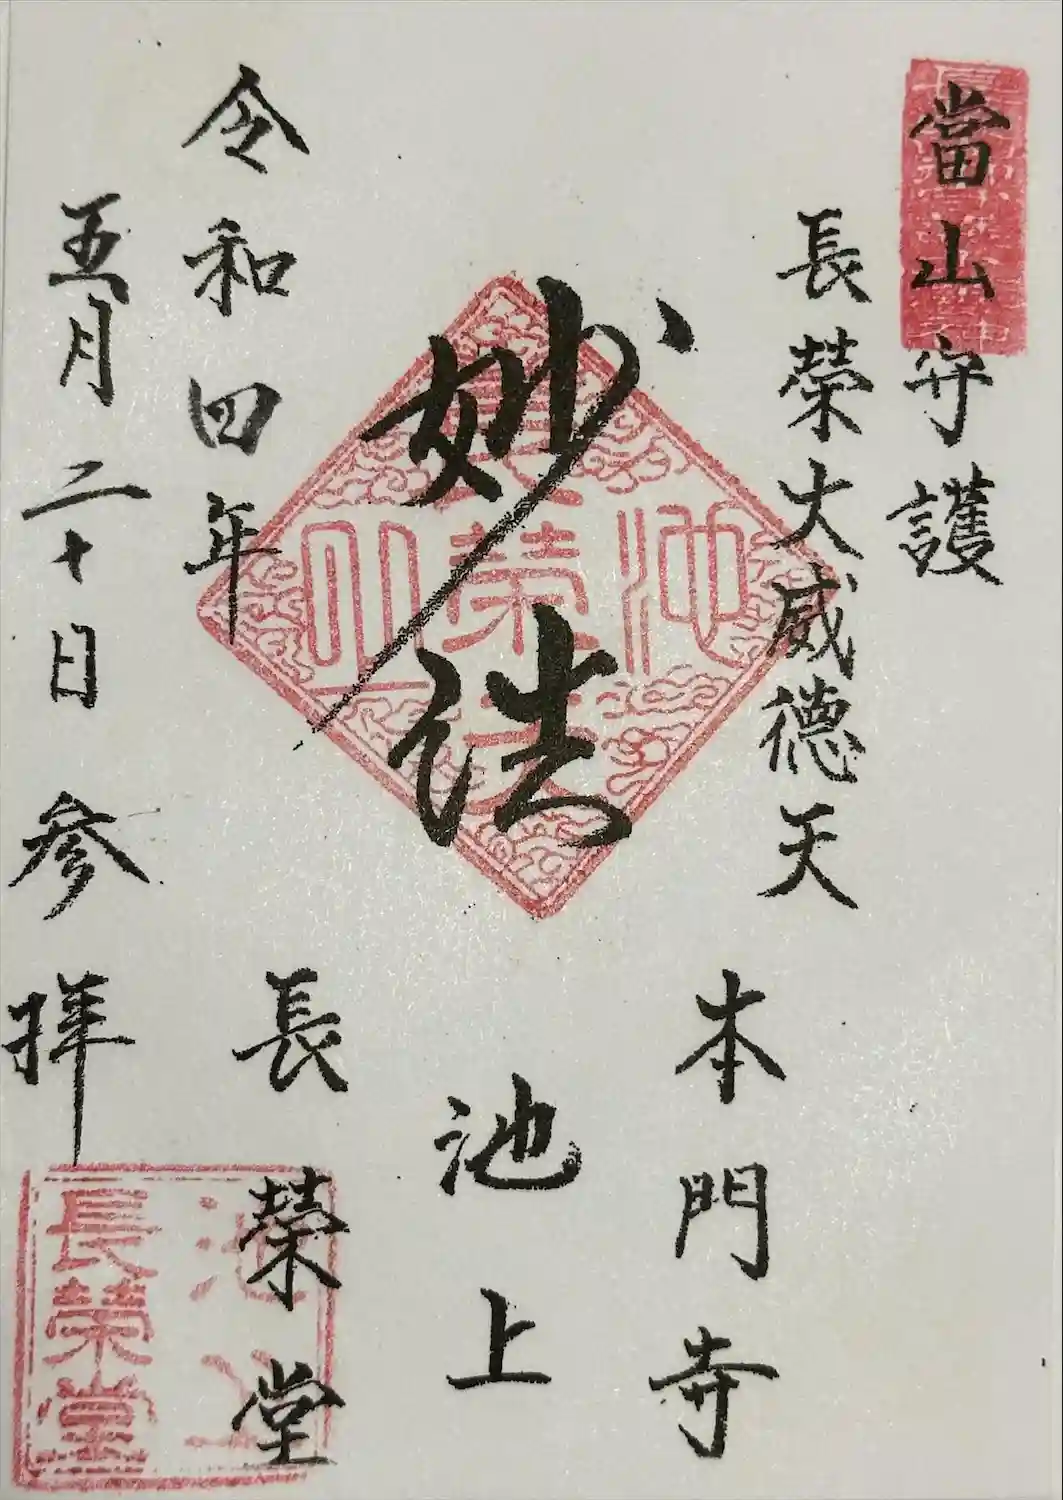 當山守護
長榮大威德天
妙法
本門寺
池上
長榮堂
令和四年
五月二十日参拝
長榮堂
池上